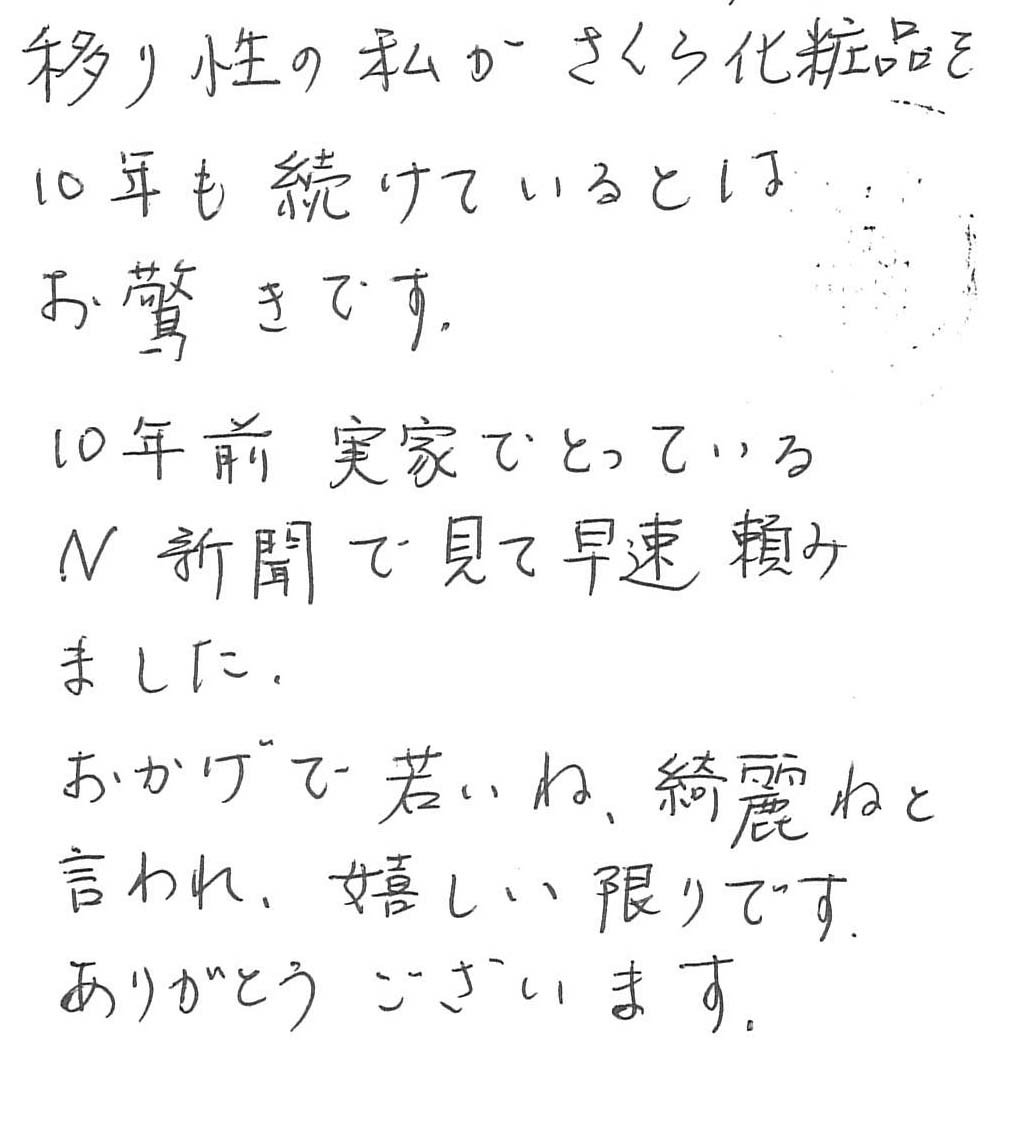 移り性の私がさくら化粧品を
10年も続けているとは
お驚きです.
10年前 実家でとっている
N 新聞で見て早速 頼み
ました.
おかげで若いね、綺麗ねと
言われ、嬉しい限りです.
ありがとうございます.